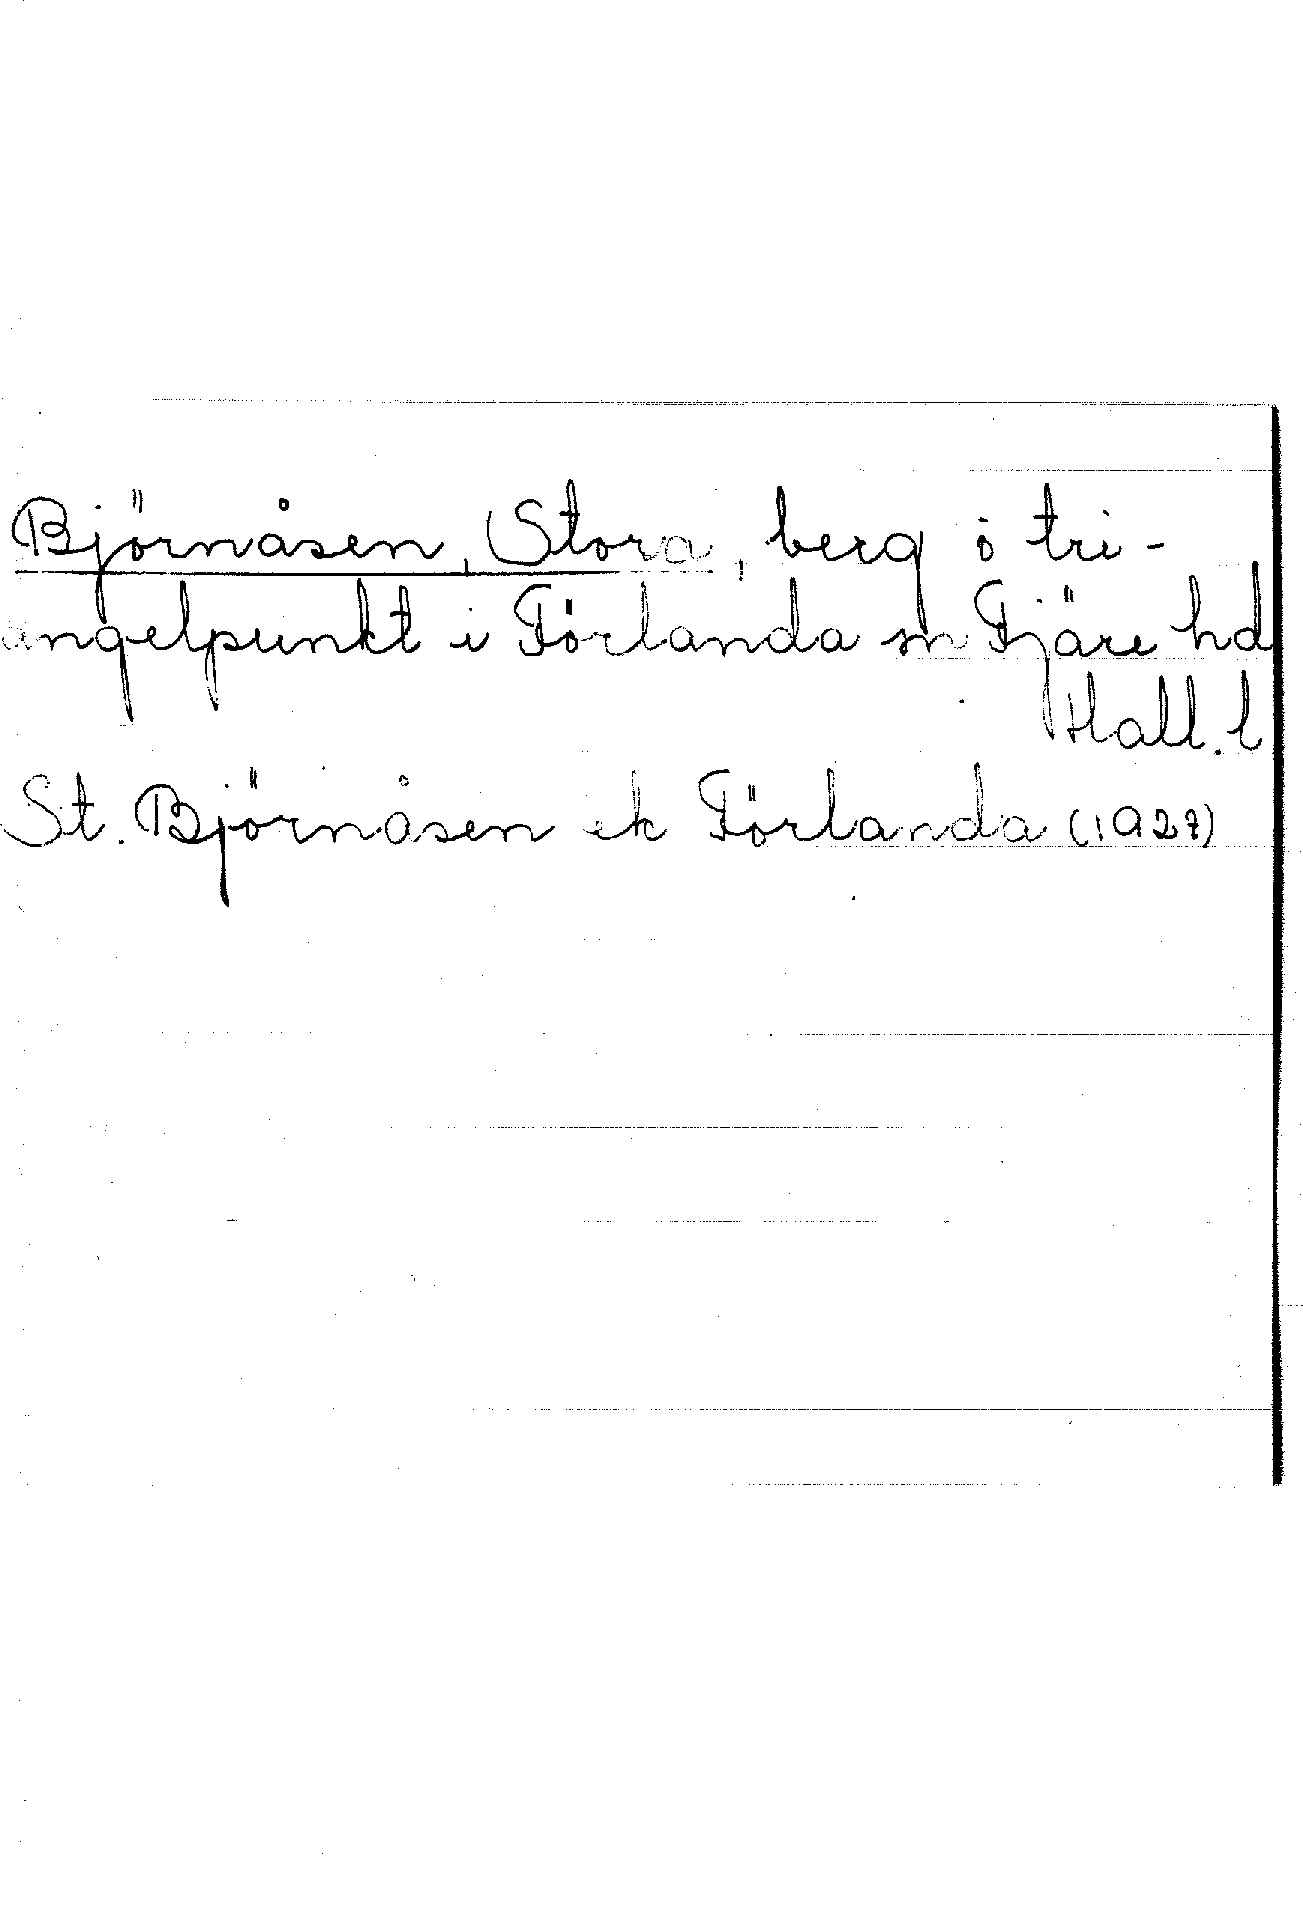 Björnåsen, Stora, berg ö tri-
angelpunkt i Förlanda sn Fjäre hd
Hall. l
St. Björnåsen ek Förlanda (1927)